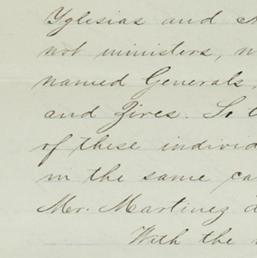 Yglesias and
not ministers,
named Generals,
and Zires. So
of these
in the same
Mr. Martinez
With the